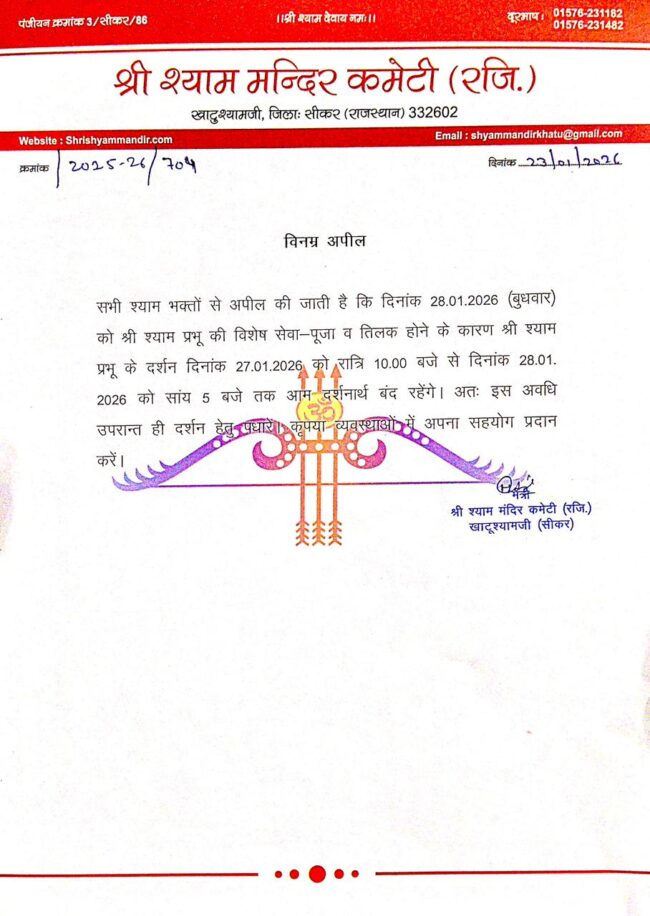 पंजीयन क्रमांक 3/सीकर/86
।।श्री श्याम देवाय नमः।।
दूरभाष : 01576-231182
01576-231482
श्री श्याम मन्दिर कमेटी (रजि.)
खाटूश्यामजी, जिलाः सीकर (राजस्थान) 332602
Website : Shrishyammandir.com
Email : shyammandirkhatu@gmail.com
क्रमांक 2025-26/704
दिनांक 23/01/2026
विनम्र अपील
सभी श्याम भक्तों से अपील की जाती है कि दिनांक 28.01.2026 (बुधवार)
को श्री श्याम प्रभू की विशेष सेवा–पूजा व तिलक होने के कारण श्री श्याम
प्रभू के दर्शन दिनांक 27.01.2026 को रात्रि 10.00 बजे से दिनांक 28.01.
2026 को सांय 5 बजे तक आम दर्शनार्थ बंद रहेंगे। अतः इस अवधि
उपरान्त ही दर्शन हेतु पधारें। कृपया व्यवस्थाओं में अपना सहयोग प्रदान
करें।
ॐ
मंत्री
श्री श्याम मंदिर कमेटी (रजि.)
खाटूश्यामजी (सीकर)